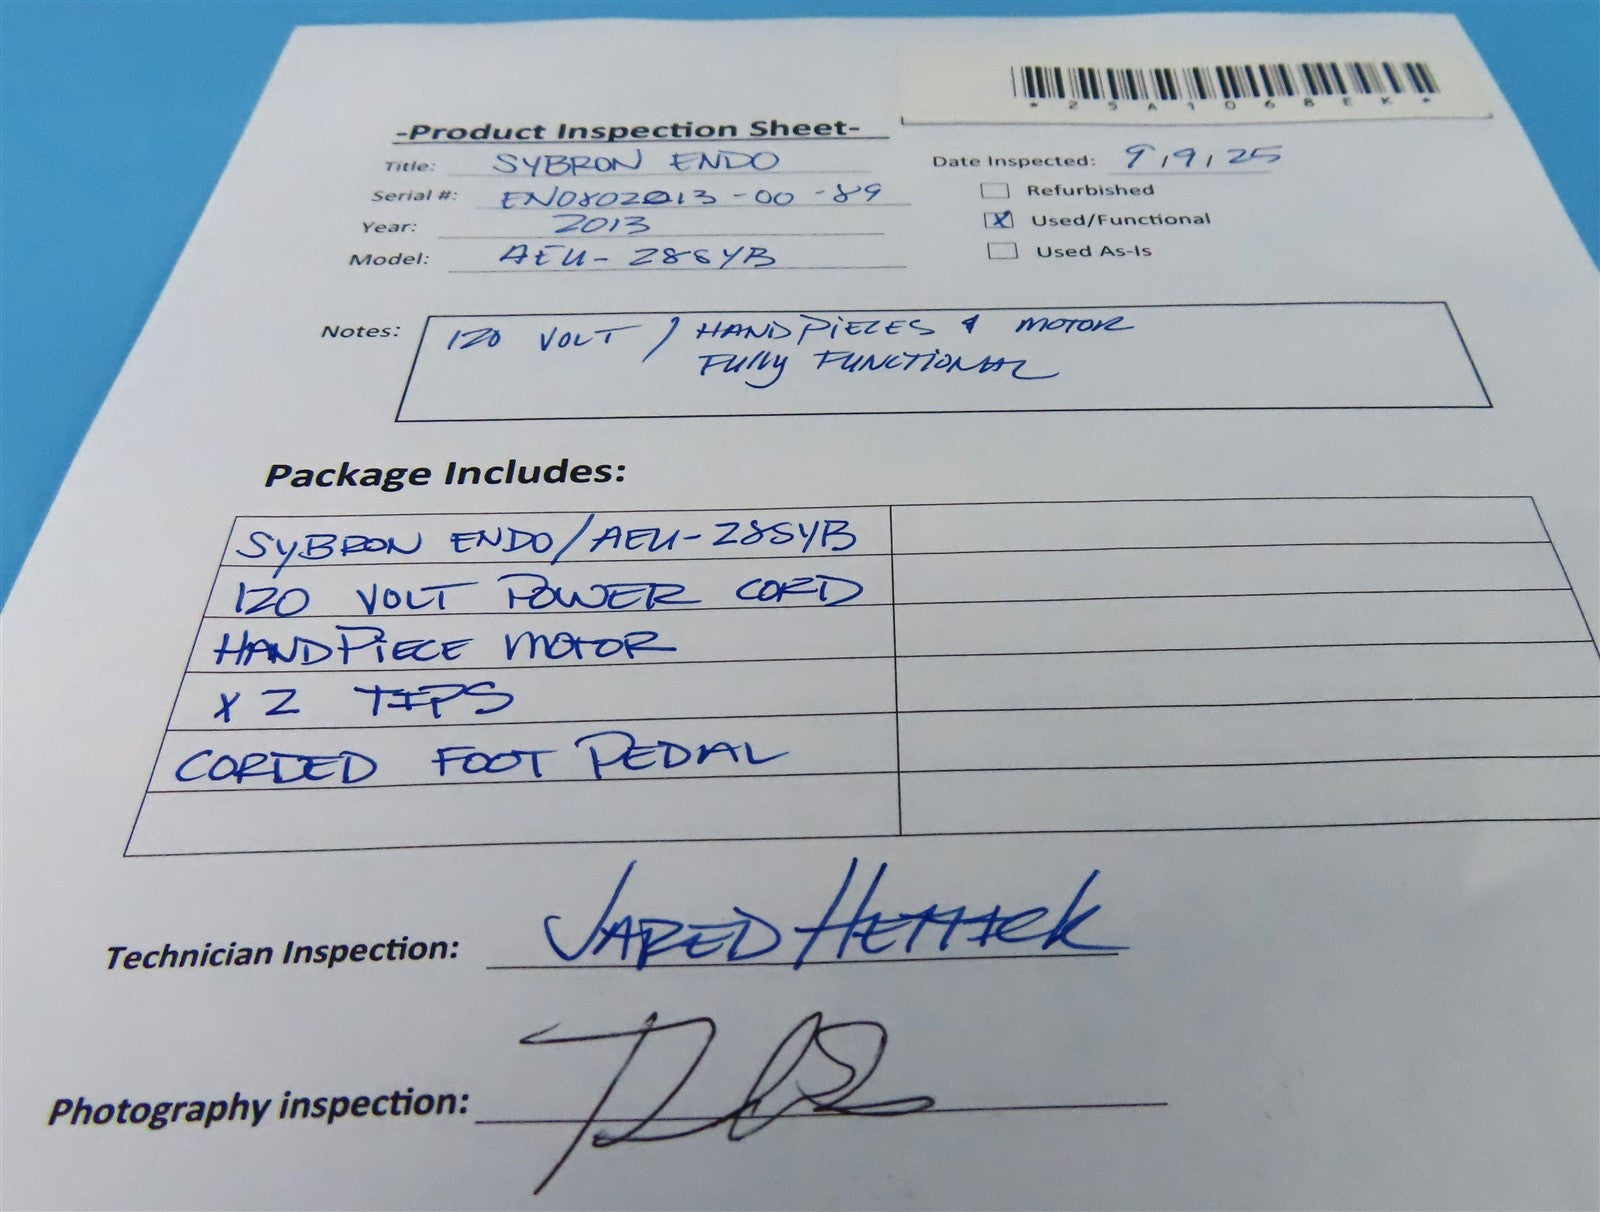 *25A1068EK*
-Product Inspection Sheet-
Title: SYBRON ENDO
Date Inspected: 9/9/25
Serial #: EN0802013-00-89
Refurbished
Year: 2013
X Used/Functional
Model: AEU-28SYB
Used As-Is
Notes: 120 VOLT / HANDPIECES & MOTOR
FUlly FUNCTIONAL
Package Includes:
SYBRON ENDO/AEU-28SYB
120 VOLT POWER CORD
HANDPIECE MOTOR
X 2 TIPS
CORDED FOOT PEDAL
Technician Inspection: JARED
Photography inspection: